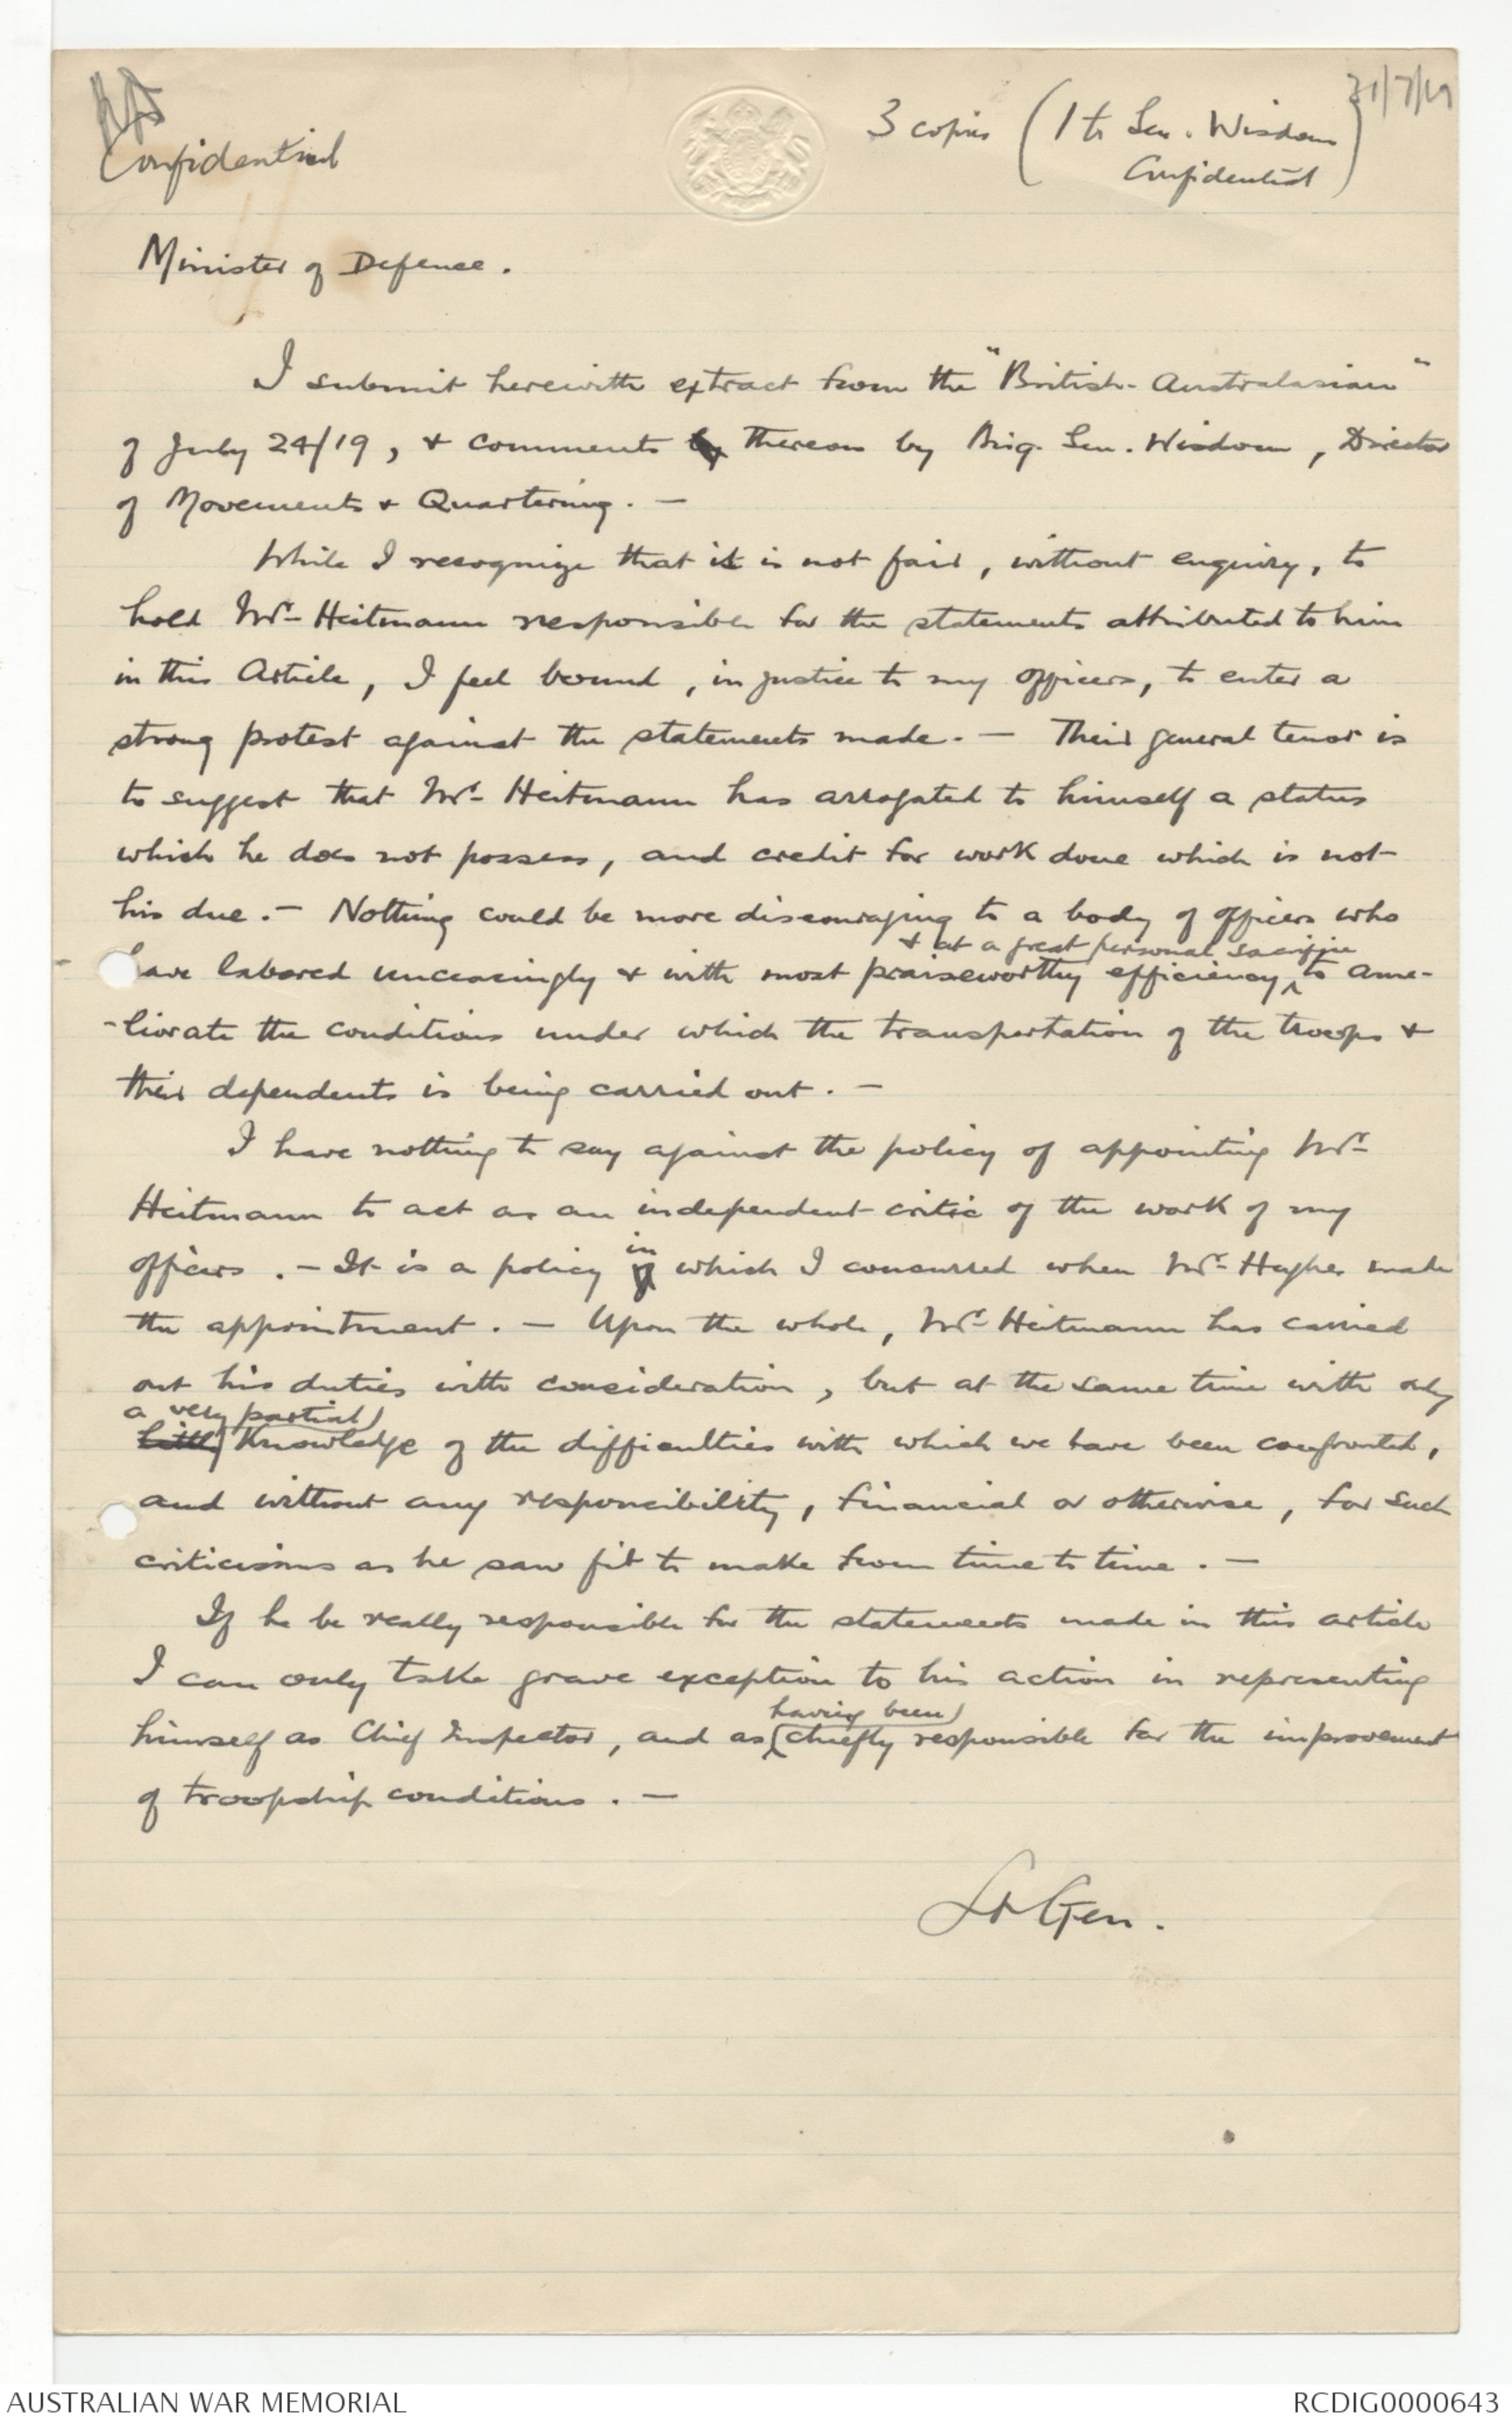 31/7/19
Confidential
3 copies (1 to Gen. Wisdom
Confidential)
Minister of Defence.
I submit herewith extract from the "British-Australasian"
of July 24/19, & comments by thereon by Brig. Gen. Wisdom, Director
of Movements & Quartering. —
While I recognize that it is not fair, without enquiry, to
hold Mr. Heitmann responsible for the statements attributed to him
in this Article, I feel bound, in justice to my officers, to enter a
strong protest against the statements made. — Their general tenor is
to suggest that Mr. Heitmann has arrogated to himself a status
which he does not possess, and credit for work done which is not
his due. — Nothing could be more discouraging to a body of officers who
& at a great personal sacrifice
have labored unceasingly & with most praiseworthy efficiency, ^ to ame-
-liorate the conditions under which the transportation of the troops &
their dependents is being carried out. —
I have nothing to say against the policy of appointing Mr.
Heitmann to act as an independent critic of the work of my
officers. — It is a policy in which I concurred when Mr. Hughes made
the appointment. — Upon the whole, Mr. Heitmann has carried
out his duties with consideration, but at the same time with only
a very partial)
little knowledge of the difficulties with which we have been confronted,
and without any responcibility, financial or otherwise, for such
criticisms as he saw fit to make from time to time. —
If he be really responsible for the statements made in this article
I can only take grave exception to his action in representing
having been)
himself as Chief Inspector, and as (chiefly responsible for the improvement
of troopship conditions. —
Lt Gen.
AUSTRALIAN WAR MEMORIAL
RCDIG0000643